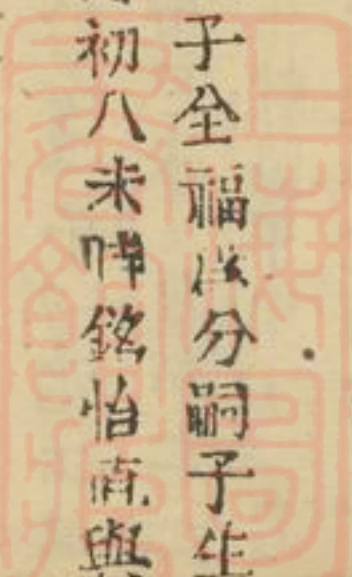 子全福後分嗣子生
初八未時銘怡南與